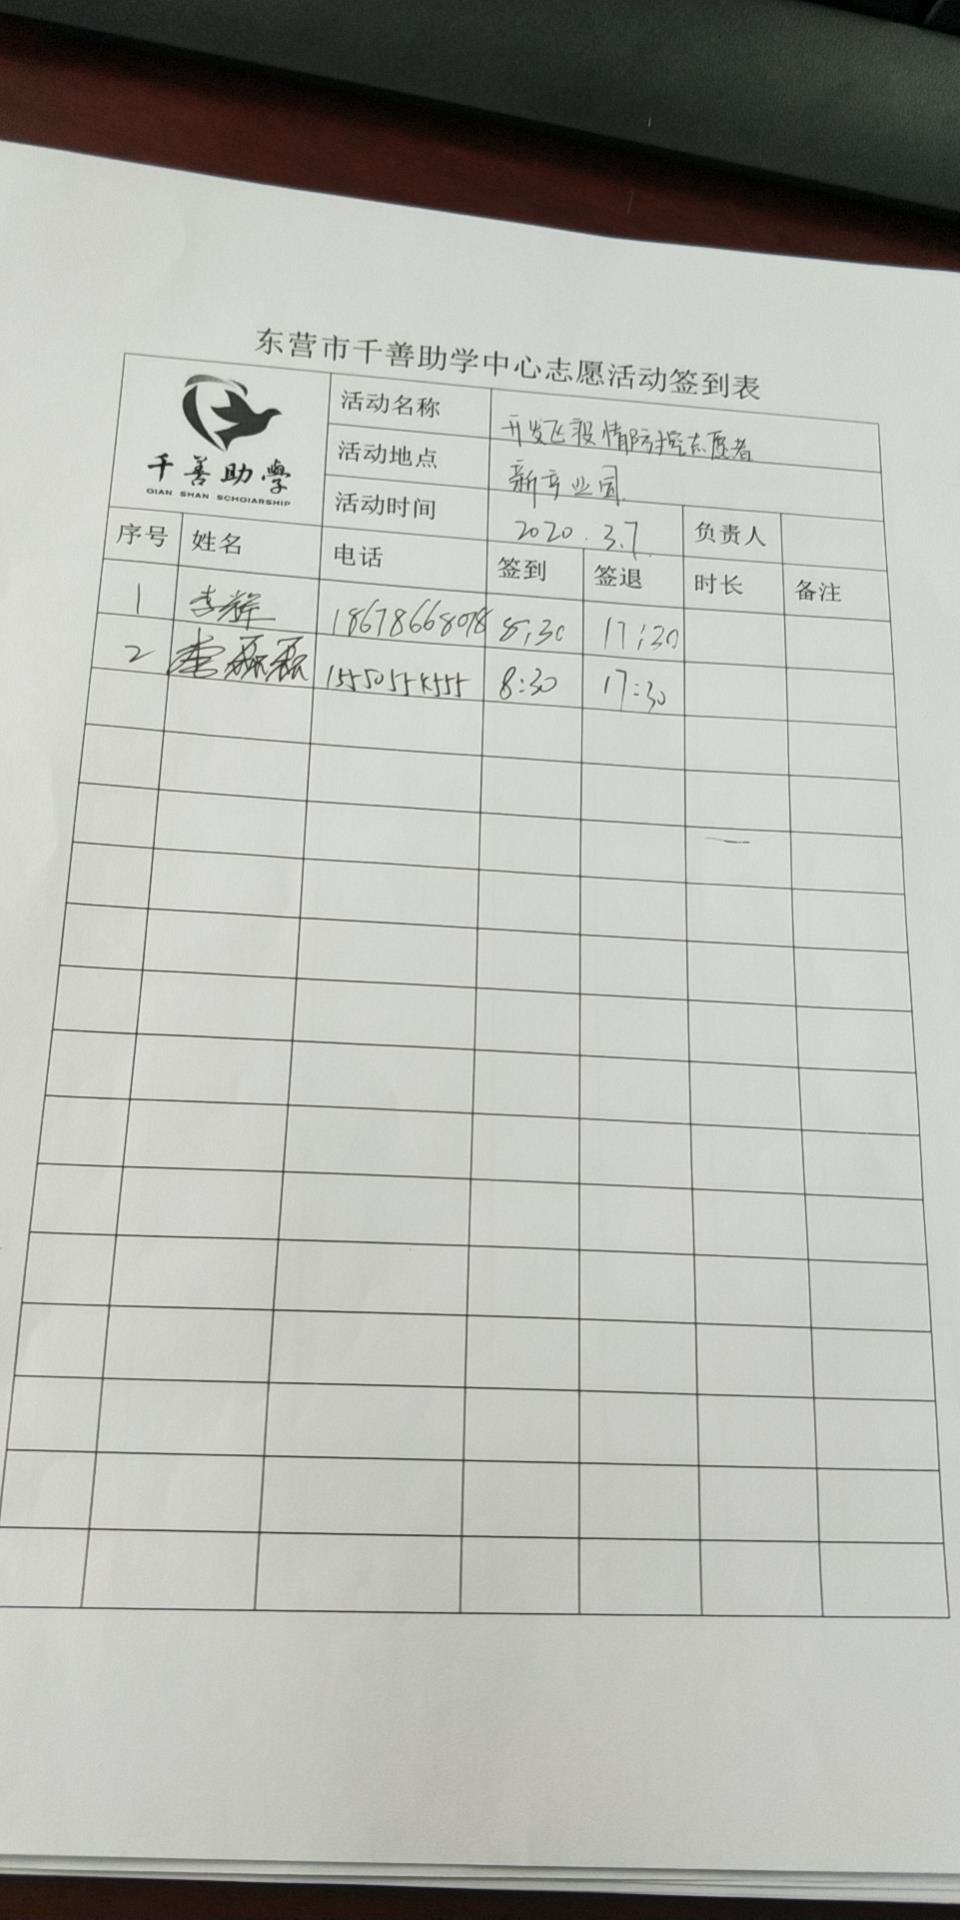 东营市千善助学中心志愿活动签到表
千善助學
QIAN SHAN SCHOlARSHIP
活动名称 开发区疫情防控志愿者
活动地点 新产业园
活动时间 2020.3.7. 负责人
序号 姓名 电话 签到 签退 时长 备注
1 李辉 18678668078 8:30 17:30
2 李磊磊 8:30 17:30